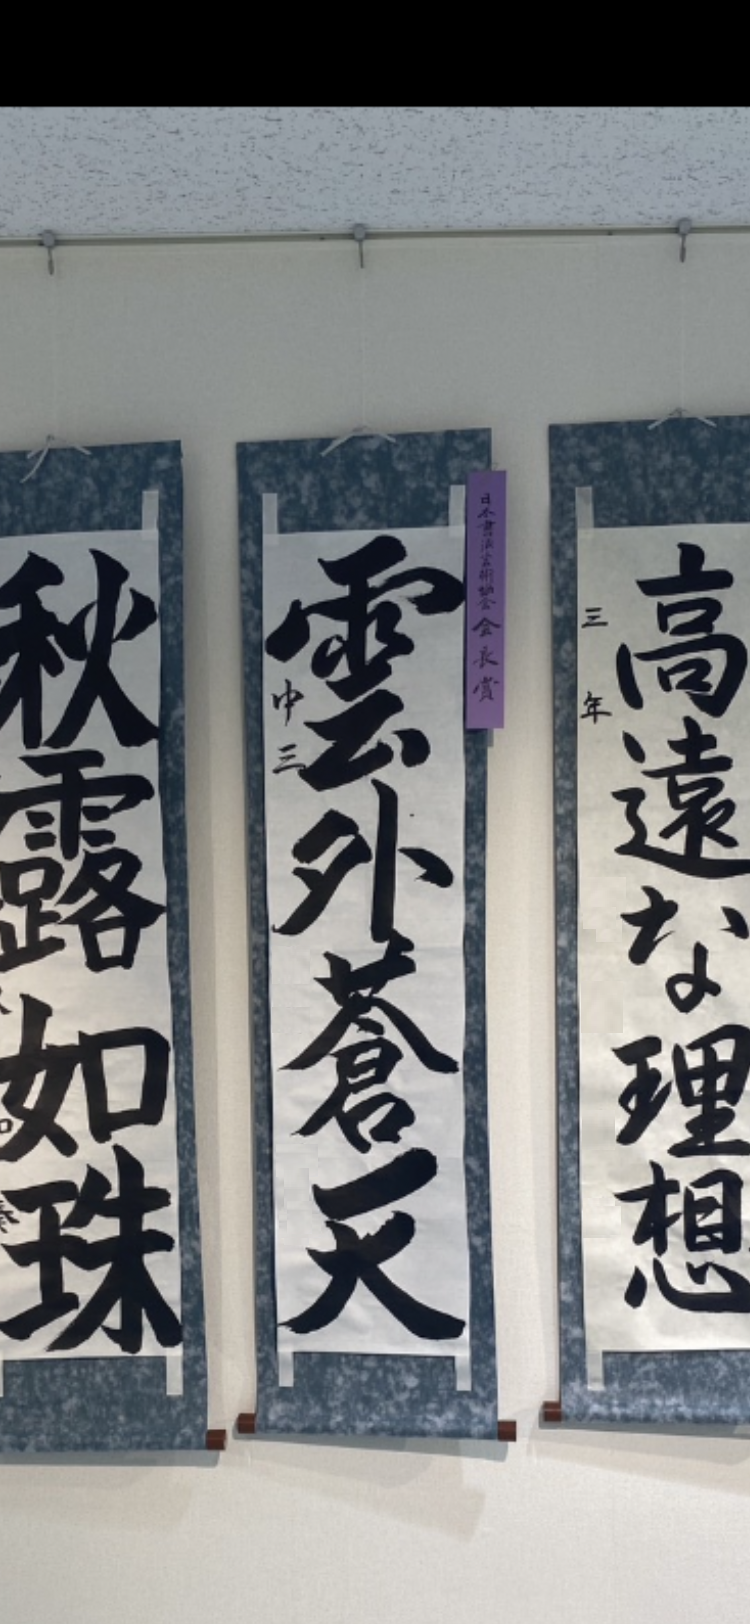 秋露如珠
日本書法芸術協会会長賞
雲外蒼天
中三
高遠な理想
三年